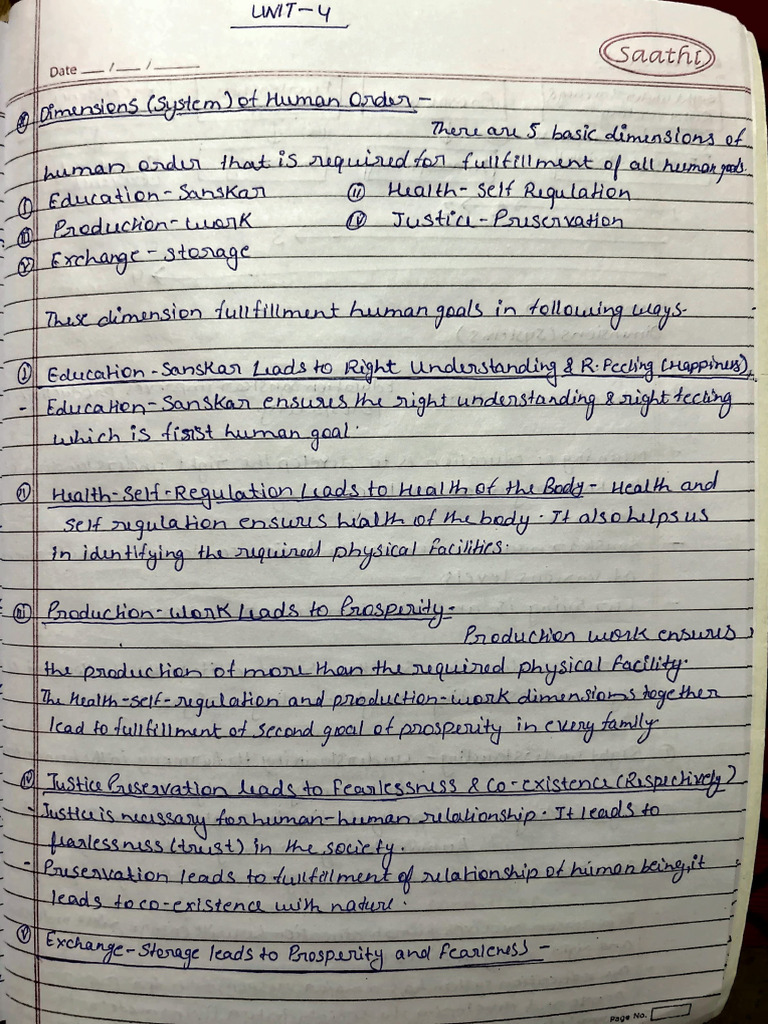 UNIT-4
Saathi
Date __/__/____
Dimensions (System) of Human Order -
There are 5 basic dimensions of
human order that is required for fullfillment of all human goals.
(i) Education-Sanskar (ii) Health-Self Regulation
(iii) Production-work (iv) Justice-Preservation
(v) Exchange-storage
These dimension fullfillment human goals in following ways.
(i) Education-Sanskar Leads to Right Understanding & R. Feeling (Happiness).
- Education-Sanskar ensures the right understanding & right feeling
which is first human goal.
(ii) Health-Self-Regulation Leads to Health of the Body - Health and
self regulation ensures health of the body. It also helps us
in identifying the required physical facilities.
(iii) Production-work leads to Prosperity-
Production work ensures
the production of more than the required physical facility.
The Health-self-regulation and production-work dimensions together
lead to fullfillment of second goal of prosperity in every family
(iv) Justice Preservation leads to Fearlessness & Co-existence (Respectively)
- Justice is necessary for human-human relationship. It leads to
fearlessness (trust) in the society.
- Preservation leads to fullfillment of relationship of human being, it
leads to co-existence with nature.
(v) Exchange-Storage leads to Prosperity and Fearleness -
Page No.